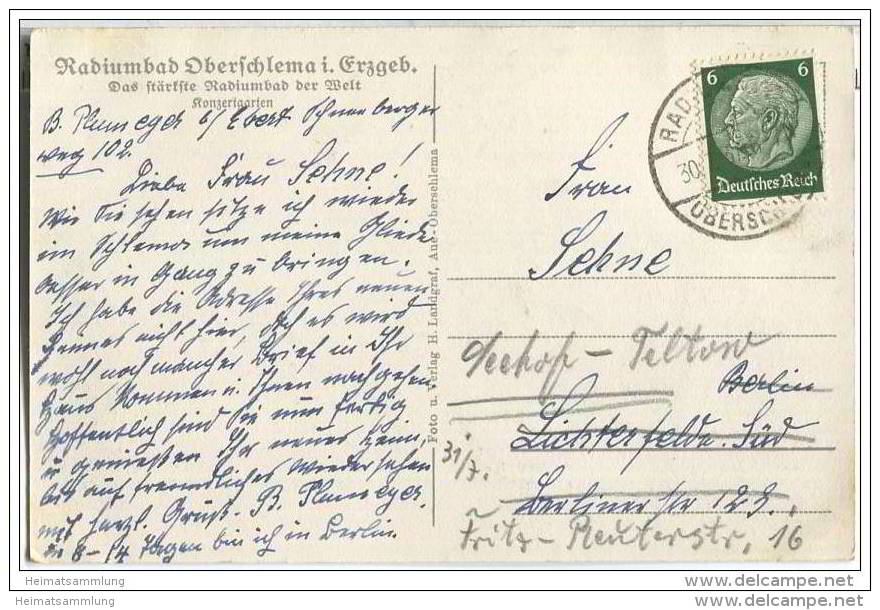 Radiumbad Oberschlema i. Erzgeb.
Das stärkste Radiumbad der Welt
Konzertgarten
B. Plumeyer b/ Ebert Schneeberger
weg 102.
Liebe Frau Sehne!
Wie Sie sehen sitze ich wieder
im Schlema um meine Glieder
besser in Gang zu bringen.
Ich habe die Adresse Ihres neuen
Heimes nicht hier, doch es wird
wohl noch mancher Brief in Ihr
Haus kommen u. Ihnen nachgehen.
Hoffentlich sind Sie nun fertig
u. genießen Ihr neues Heim,
bis auf freundliches Wiedersehen
mit herzl. Gruß. B. Plumeyer.
in 8-14 Tagen bin ich in Berlin.
Foto u. Verlag H. Landgraf, Aue-Oberschlema
6 6
Deutsches Reich
RAD
30
OBERSC
Frau
Sehne
Seehof - Teltow
Berlin
Lichterfelde. Süd
31/7.
Berliner str 123.
Fritz-Reuterstr. 16
Heimatsammlung
Heimatsammlung
www.delcampe.net
www.delcampe.net